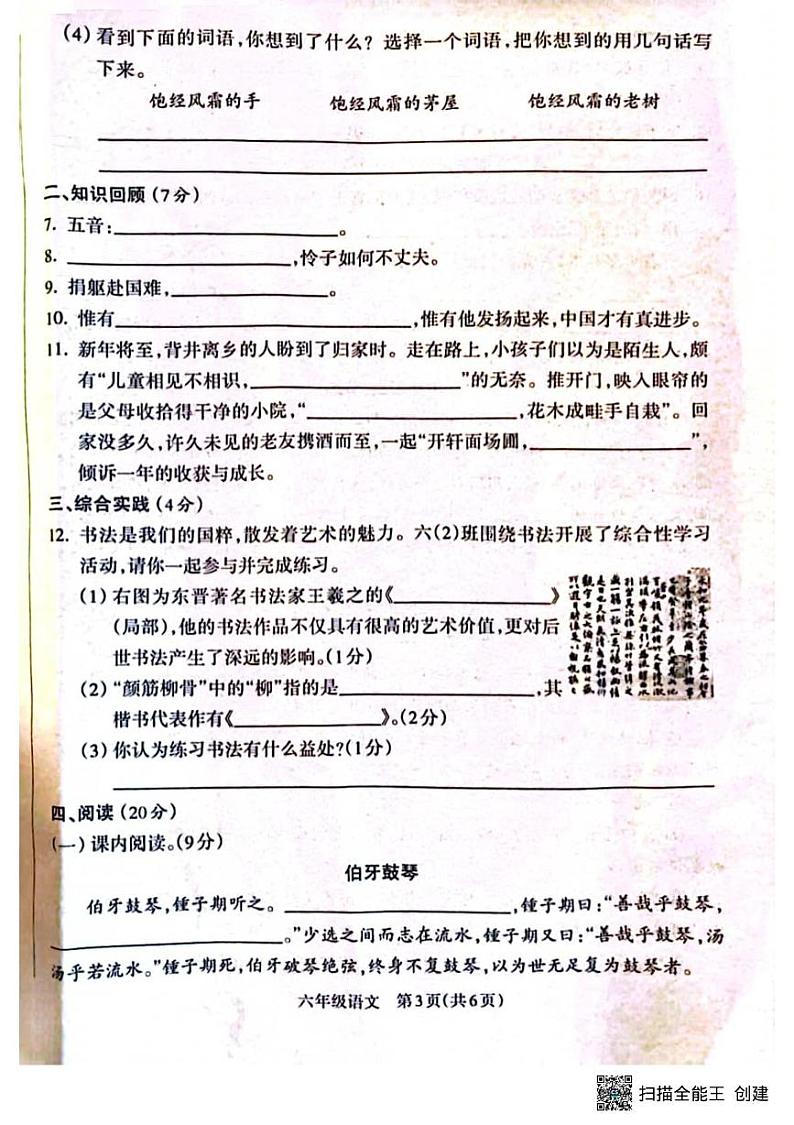 (4)看到下面的词语,你想到了什么?选择一个词语,把你想到的用几句话写
下来。
饱经风霜的手 饱经风霜的茅屋 饱经风霜的老树
二、知识回顾(7分)
7. 五音:____________。
8. ____________,怜子如何不丈夫。
9. 捐躯赴国难,____________。
10. 惟有____________,惟有他发扬起来,中国才有真进步。
11. 新年将至,背井离乡的人盼到了归家时。走在路上,小孩子们以为是陌生人,颇
有“儿童相见不相识,____________”的无奈。推开门,映入眼帘的
是父母收拾得干净的小院,“____________,花木成畦手自栽”。回
家没多久,许久未见的老友携酒而至,一起“开轩面场圃,____________”,
倾诉一年的收获与成长。
三、综合实践(4分)
12. 书法是我们的国粹,散发着艺术的魅力。六(2)班围绕书法开展了综合性学习
活动,请你一起参与并完成练习。
(1)右图为东晋著名书法家王羲之的《____________》
(局部),他的书法作品不仅具有很高的艺术价值,更对后
世书法产生了深远的影响。(1分)
(2)“颜筋柳骨”中的“柳”指的是____________,其
楷书代表作有《____________》。(2分)
(3)你认为练习书法有什么益处?(1分)
四、阅读(20分)
(一)课内阅读。(9分)
伯牙鼓琴
伯牙鼓琴,锺子期听之。____________,锺子期曰:“善哉乎鼓琴,
____________。”少选之间而志在流水,锺子期又曰:“善哉乎鼓琴,汤
汤乎若流水。”锺子期死,伯牙破琴绝弦,终身不复鼓琴,以为世无足复为鼓琴者。
六年级语文 第3页(共6页)
扫描全能王 创建